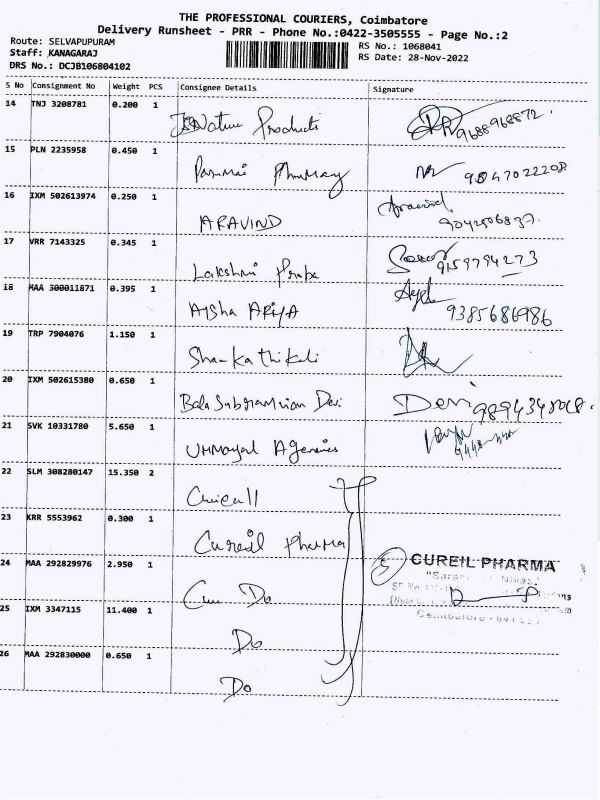 THE PROFESSIONAL COURIERS, Coimbatore
Delivery Runsheet - PRR - Phone No.:0422-3505555 - Page No.:2
Route: SELVAPUPURAM
Staff: KANAGARAJ
DRS No.: DCJB106804102
RS No.: 1068041
RS Date: 28-Nov-2022
S No Consignment No Weight PCS Consignee Details Signature
14 TNJ 3208781 0.200 1 Nature Products 9688968872.
15 PLN 2235958 0.450 1
16 IXM 502613974 0.250 1 ARAVIND Aravind 9042506837.
17 VRR 7143325 0.345 1 Lakshmi 9159794273
18 MAA 300011871 0.395 1 AISHA ARIYA 9385686986
19 TRP 7904076 1.150 1
20 IXM 502615380 0.650 1 Devi
21 SVK 10331780 5.650 1 UMMAYAL Agencies
22 SLM 308280147 15.350 2
23 KRR 5553962 0.300 1 Cureil Pharma
24 MAA 292829976 2.950 1 Do
25 IXM 3347115 11.400 1 Do
26 MAA 292830000 0.650 1 Do
5 CUREIL PHARMA